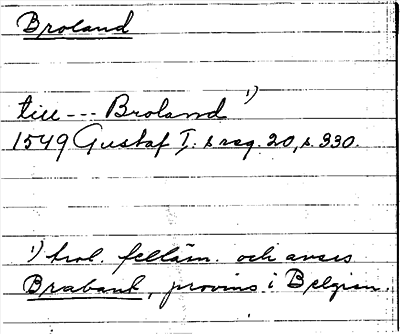 Broland
till --- Broland 1)
1549 Gustaf I:s reg. 20, s. 330.
1) trol. felläsn. och avses
Brabant, provins i Belgien.